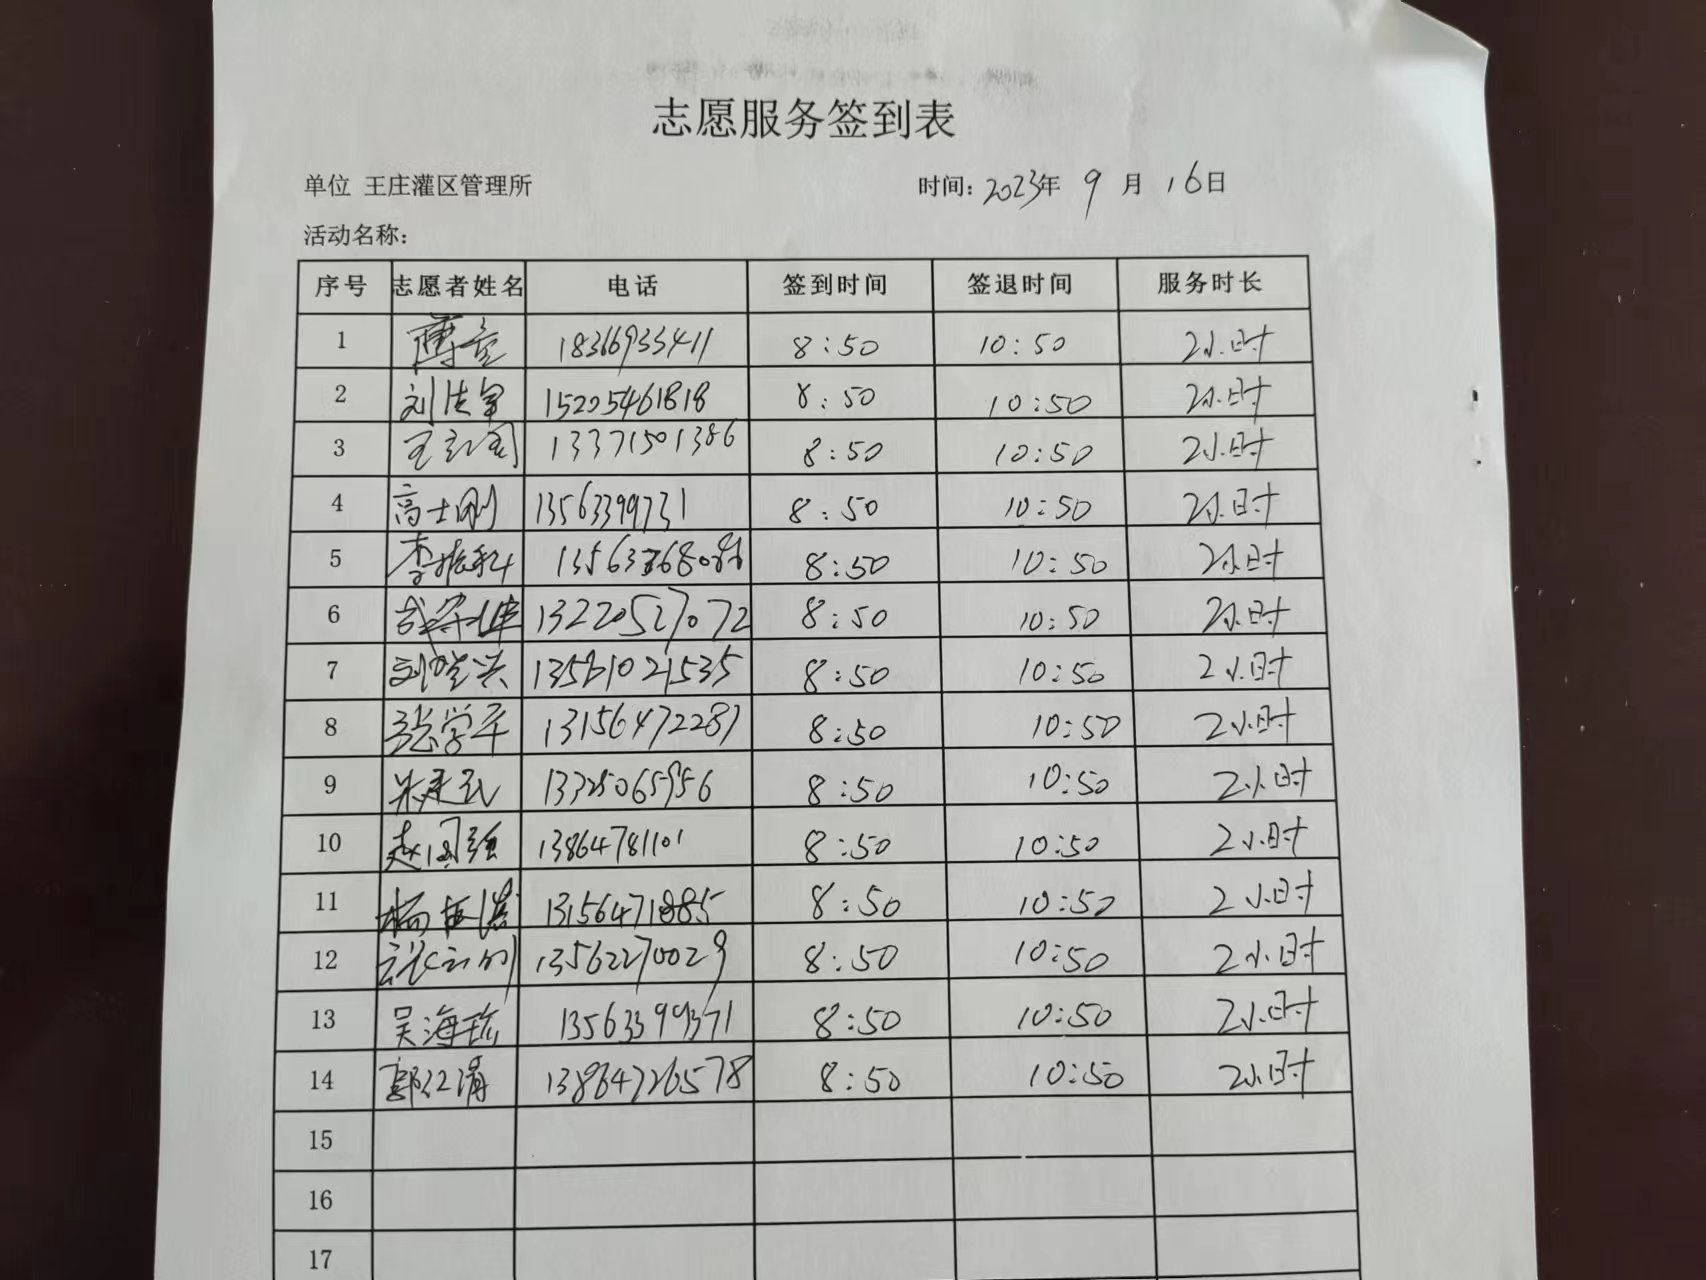 志愿服务签到表
单位 王庄灌区管理所 时间: 2023年 9月 16日
活动名称:
序号 志愿者姓名 电话 签到时间 签退时间 服务时长
1 18366933411 8:50 10:50 2小时
2 15205461818 8:50 10:50 2小时
3 13371501386 8:50 10:50 2小时
4 高士刚 13563399731 8:50 10:50 2小时
5 8:50 10:50 2小时
6 13220527072 8:50 10:50 2小时
7 13561021535 8:50 10:50 2小时
8 张学平 13156472287 8:50 10:50 2小时
9 8:50 10:50 2小时
10 赵国强 13864781101 8:50 10:50 2小时
11 13156471885 8:50 10:50 2小时
12 13562270029 8:50 10:50 2小时
13 13563399371 8:50 10:50 2小时
14 郭江涓 13864726578 8:50 10:50 2小时
15
16
17